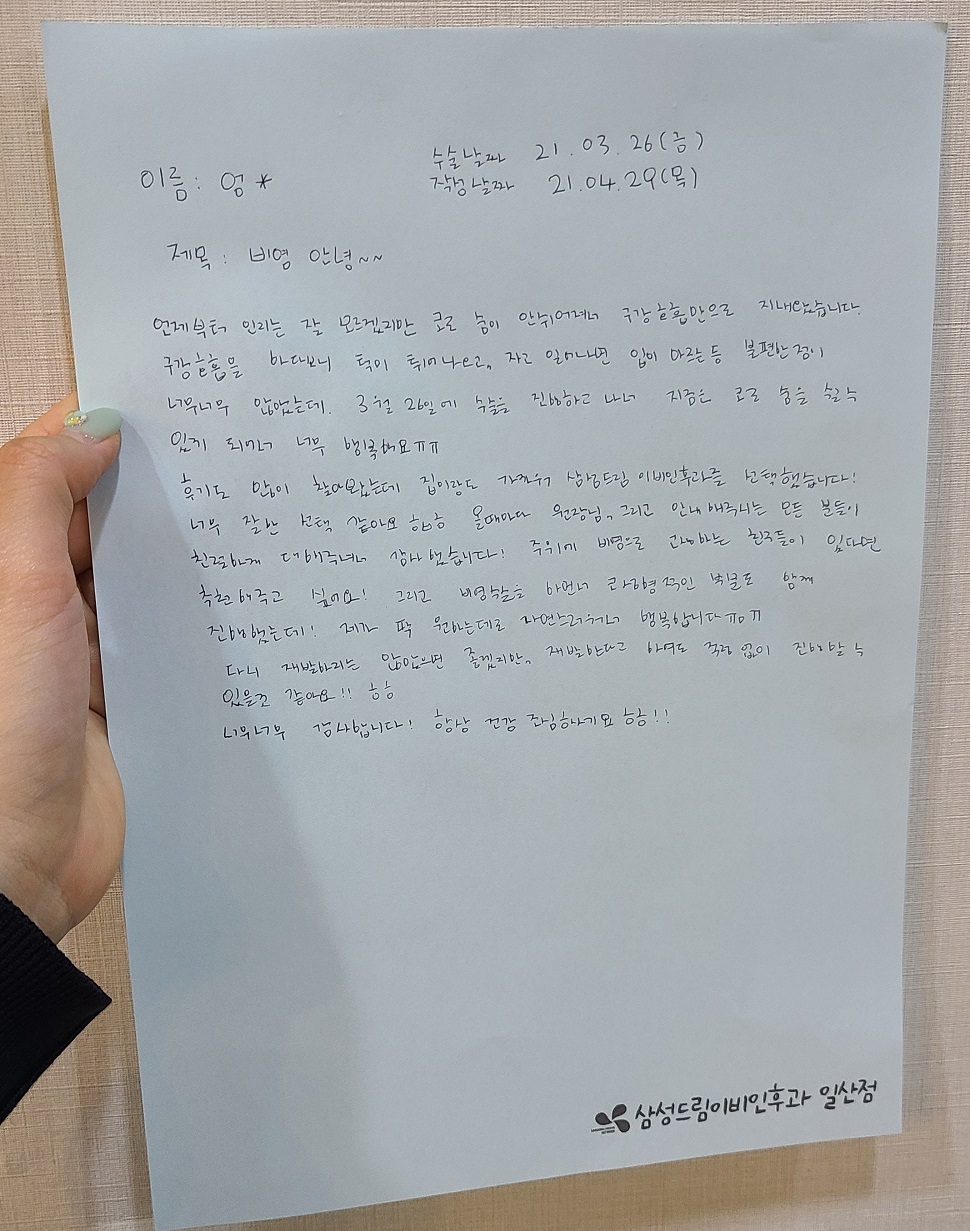 수술날짜 21.03.26(금)
이름: 엄* 작성날짜 21.04.29(목)
제목 : 비염 안녕~~
언제부터 인지는 잘 모르겠지만 코로 숨이 안쉬어져서 구강호흡만으로 지내왔습니다.
구강호흡을 하다보니 턱이 튀어나오고, 자고 일어나면 입이 마르는등 불편한점이
너무너무 많았는데. 3월 26일에 수술을 진행하고 나서 지금은 코로 숨을 쉴수
있게 되어서 너무 행복해요ㅠㅠ
후기도 많이 찾아봤는데 집이랑도 가까워 삼성드림이비인후과를 선택했습니다!
너무 잘한 선택 같아요 ㅎㅎㅎ 올때마다 원장님, 그리고 안내해주시는 모든 분들이
친절하게 대해주셔서 감사했습니다! 주위에 비염으로 고생하는 친구들이 있다면
추천해주고 싶어요! 그리고 비염수술을 하면서 코성형적인 부분도 함께
진행했는데! 제가 딱 원하는데로 자연스러워서 행복합니다ㅠㅁㅠ
다시 재발하지는 않았으면 좋겠지만, 재발한다고 하여도 걱정 없이 진행할 수
있을것 같아요!! ㅎㅎ
너무너무 감사합니다! 항상 건강 조심하세요 ㅎㅎ!!
삼성드림이비인후과 일산점